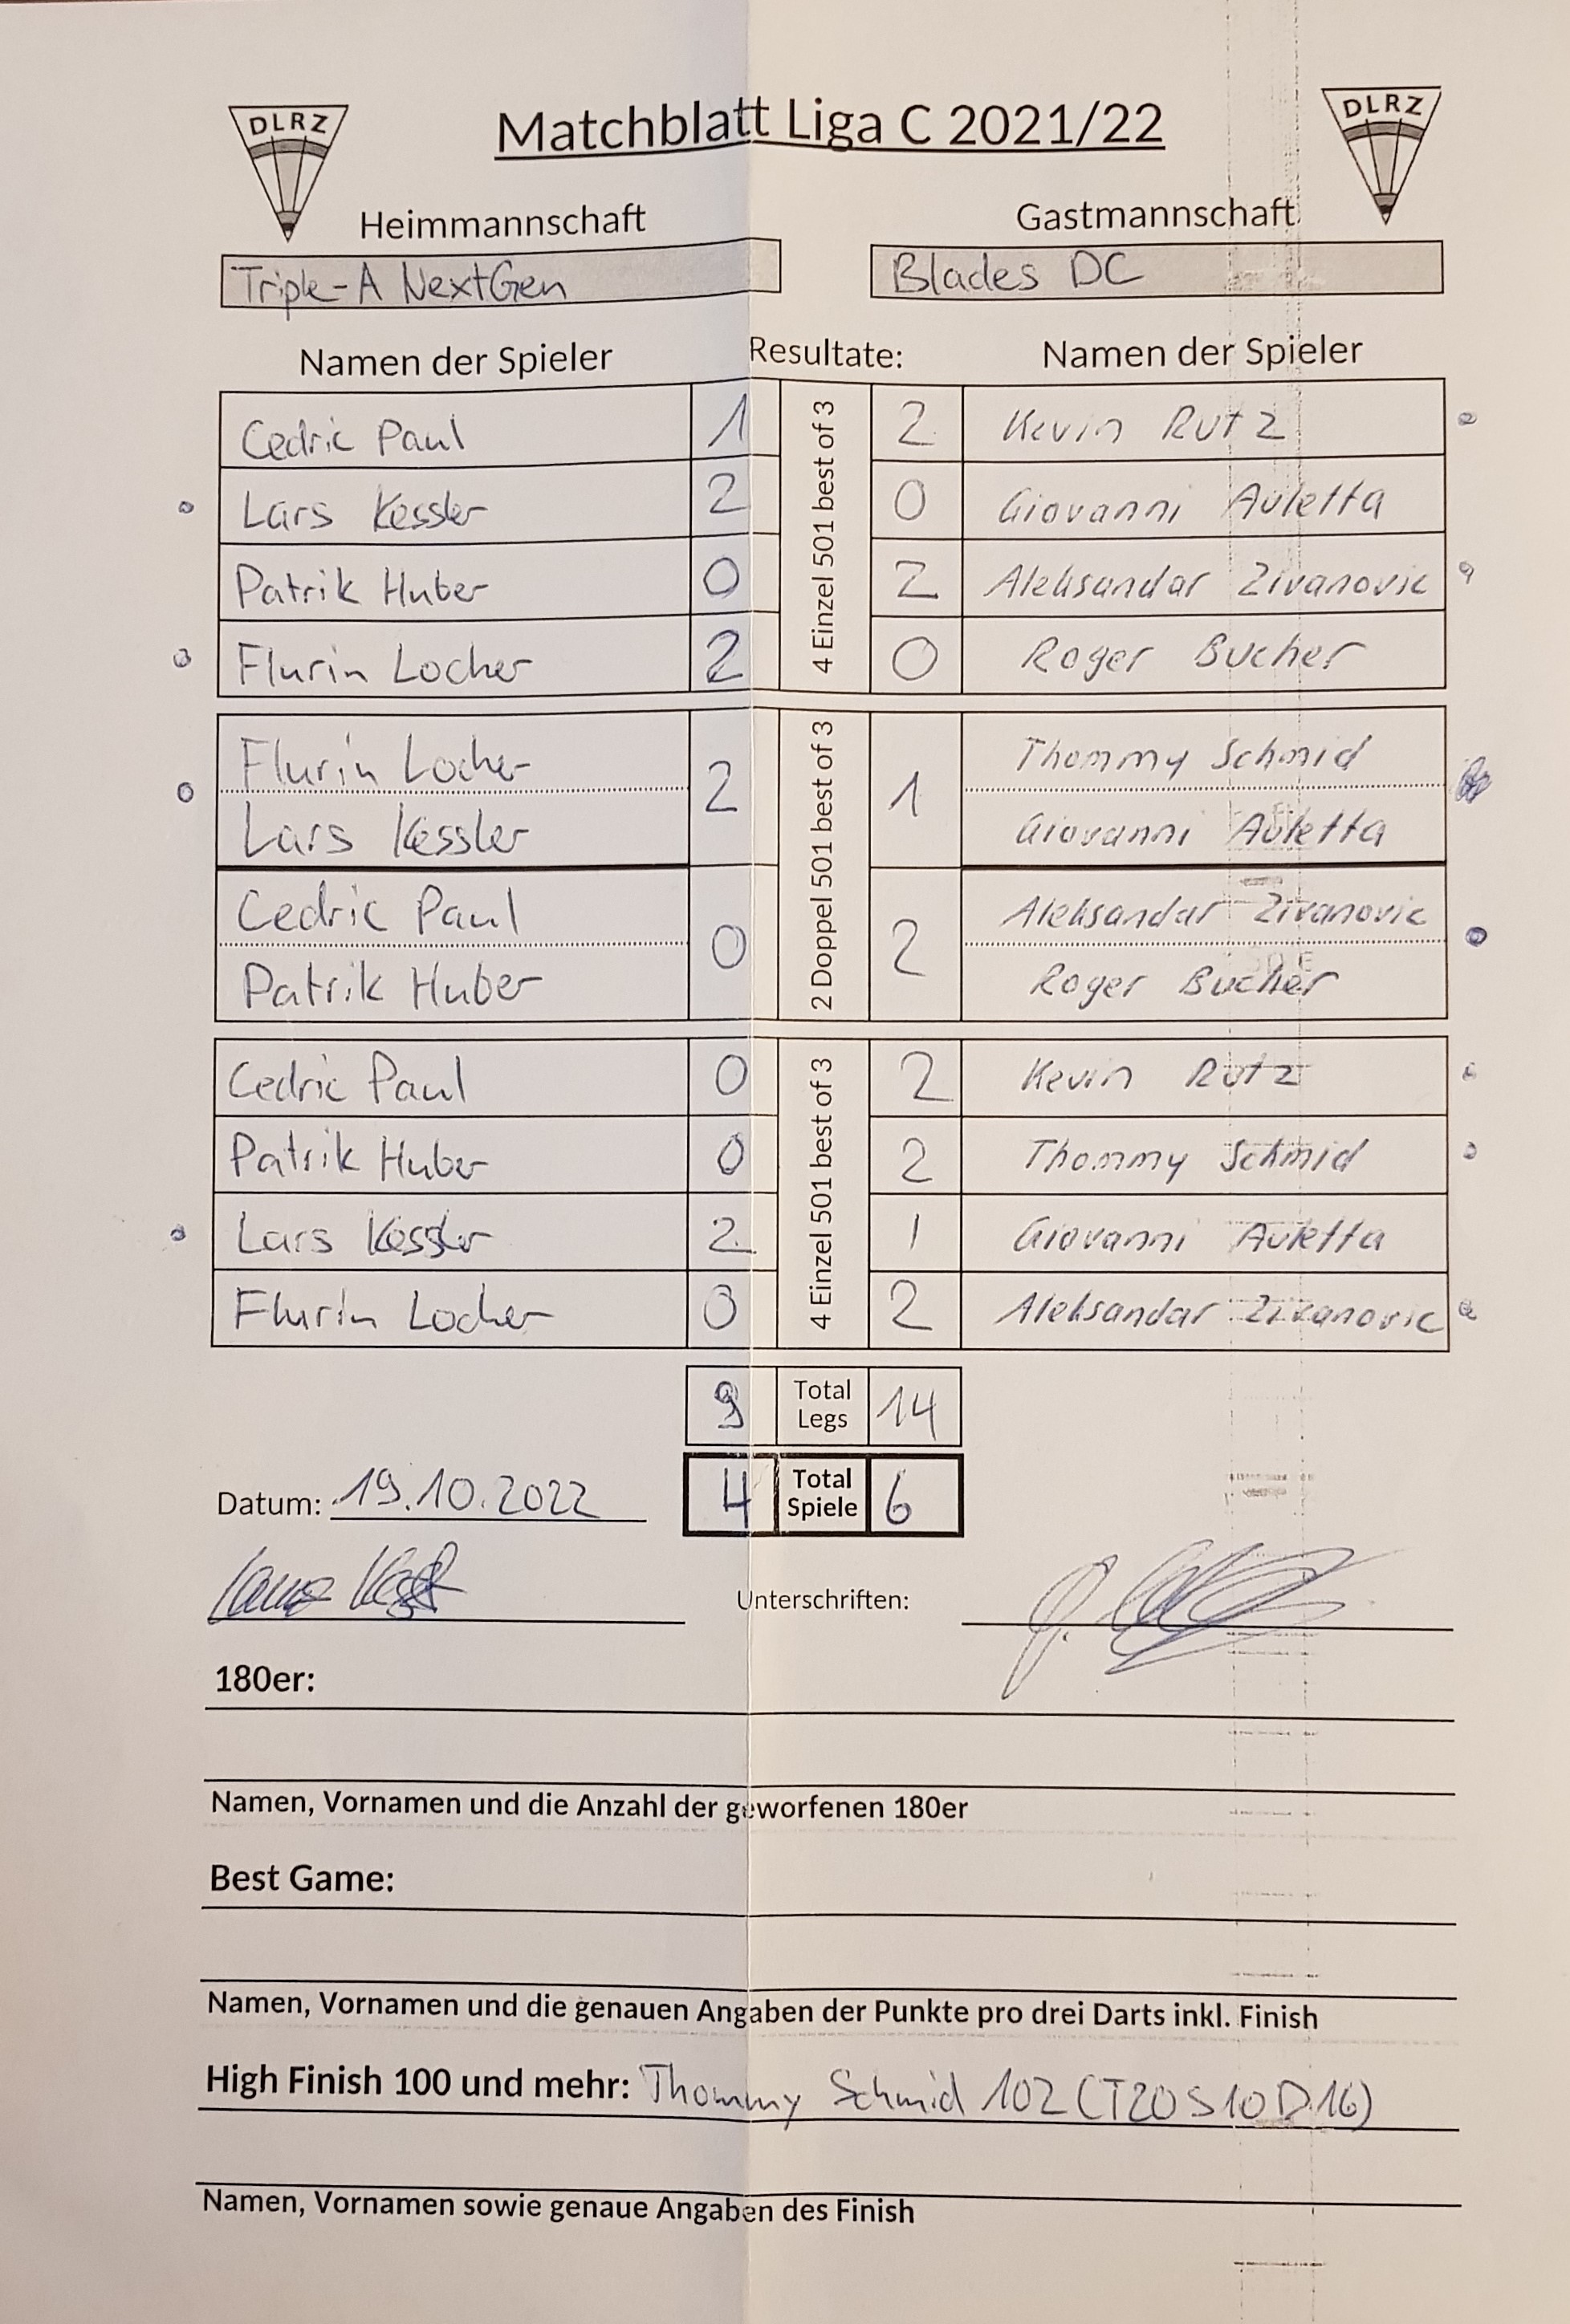 DLRZ Matchblatt Liga C 2021/22 DLRZ
Heimmannschaft Gastmannschaft
Triple-A NextGen Blades DC
Namen der Spieler Resultate: Namen der Spieler
4 Einzel 501 best of 3
Cedric Paul 1 2 Kevin Rutz
Lars Kessler 2 0 Giovanni Auletta
Patrik Huber 0 2 Aleksandar Zivanovic
Flurin Locher 2 0 Roger Bucher
2 Doppel 501 best of 3
Flurin Locher 2 1 Thommy Schmid
Lars Kessler Giovanni Auletta
Cedric Paul 0 2 Aleksandar Zivanovic
Patrik Huber Roger Bucher
4 Einzel 501 best of 3
Cedric Paul 0 2 Kevin Rutz
Patrik Huber 0 2 Thommy Schmid
Lars Kessler 2 1 Giovanni Auletta
Flurin Locher 0 2 Aleksandar Zivanovic
9 Total Legs 14
Datum: 19.10.2022 4 Total Spiele 6
Unterschriften:
180er:
Namen, Vornamen und die Anzahl der geworfenen 180er
Best Game:
Namen, Vornamen und die genauen Angaben der Punkte pro drei Darts inkl. Finish
High Finish 100 und mehr: Thommy Schmid 102 (T20 S10 D16)
Namen, Vornamen sowie genaue Angaben des Finish